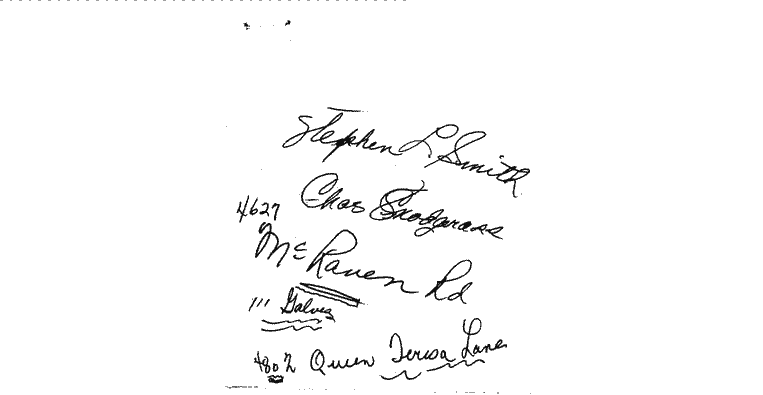 Stephen L. Smith
Chas Snodgrass
4627
McRaven Rd
111 Galvez
4802 Queen Teresa Lane